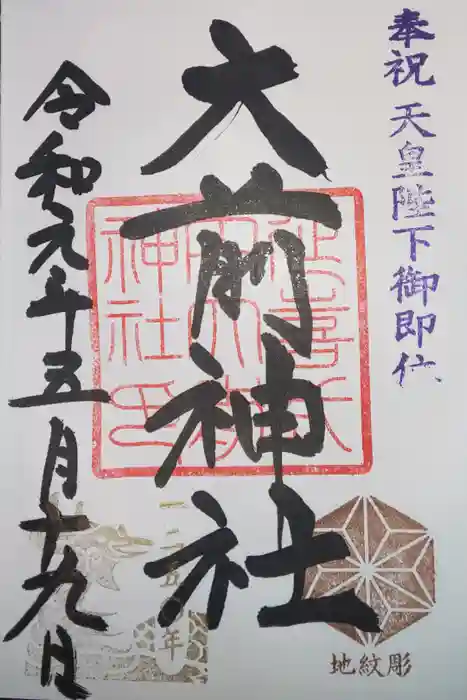 奉祝 天皇陛下御即位
大前神社
延喜式内大前神社印
令和元年五月十九日
地紋彫